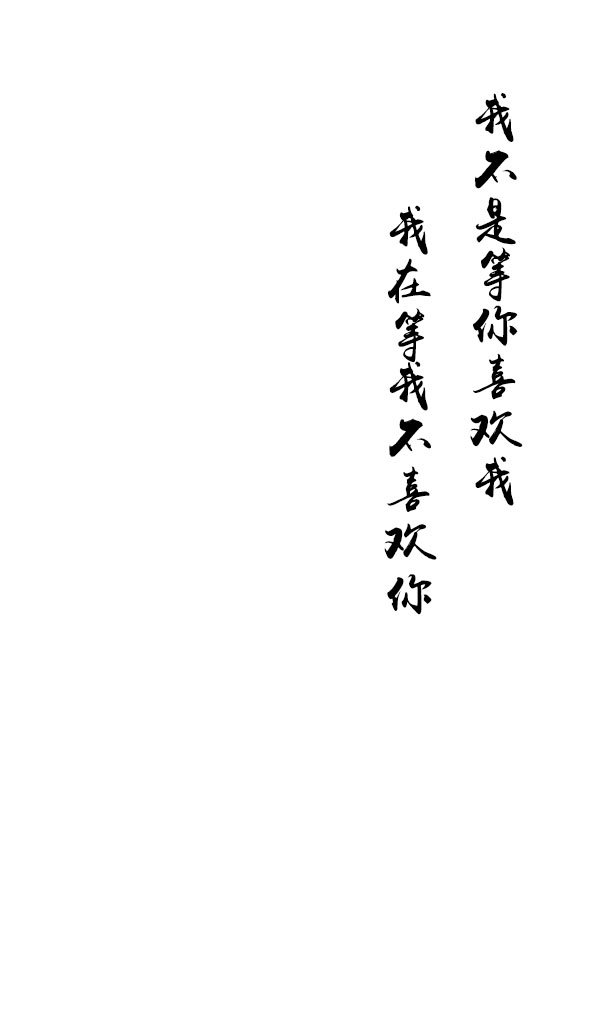 我不是等你喜欢我
我在等我不喜欢你